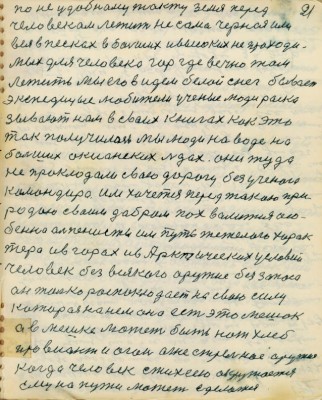 21
по не удобному такту земя перед
человеком лежит не сама черная или
вся в песках в больших и высоких не проходи-
мых для человека гор где вечно там
лежить мы его видем белой снег бывает
экспедицые любители ученые люди расска
зывают нам в своих книгах как это
так получилось мы люди на воде на
больших океанских людах. они туда
не прокладали свою дорогу без ученого
командира. им хочется перед такою при-
родою своим добром похвалится осо-
бенно альпенисты им путь тежелого харак
тера и в горах и в Арктических условий
человек без всякого оружие без запаса
он только располагает на свою силу
которая на нем она есть это мешок
а в мешке может быть нож хлеб
провиант и огонь а не стрелное оружие
когда человек стихею
ему на пути может сделатся